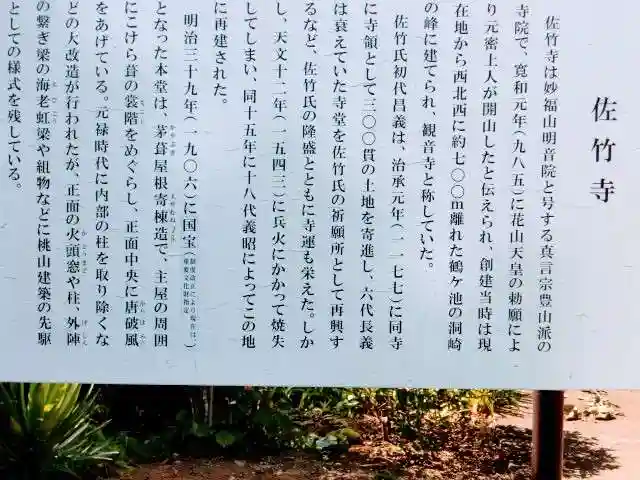 佐竹寺
佐竹寺は妙福山明音院と号する真言宗豊山派の
寺院で、寛和元年(九八五)に花山天皇の勅願によ
り元密上人が開山したと伝えられ、創建当時は現
在地から西北西に約七〇〇m離れた鶴ヶ池の洞崎
の峰に建てられ、観音寺と称していた。
佐竹氏初代昌義は、治承元年(一一七七)に同寺
に寺領として三〇〇貫の土地を寄進し、六代長義
は衰えていた寺堂を佐竹氏の祈願所として再興す
るなど、佐竹氏の隆盛とともに寺運も栄えた。しか
し、天文十二年(一五四三)に兵火にかかって焼失
してしまい、同十五年に十八代義昭によってこの地
に再建された。
明治三十九年(一九〇六)に国宝(制度改正により現在は、重要文化財指定)
となった本堂は、茅葺屋根寄棟造で、主屋の周囲
にこけら葺の裳階をめぐらし、正面中央に唐破風
をあげている。元禄時代に内部の柱を取り除くな
どの大改造が行われたが、正面の火頭窓や柱、外陣
の繋ぎ梁の海老虹梁や組物などに桃山建築の先駆
としての様式を残している。